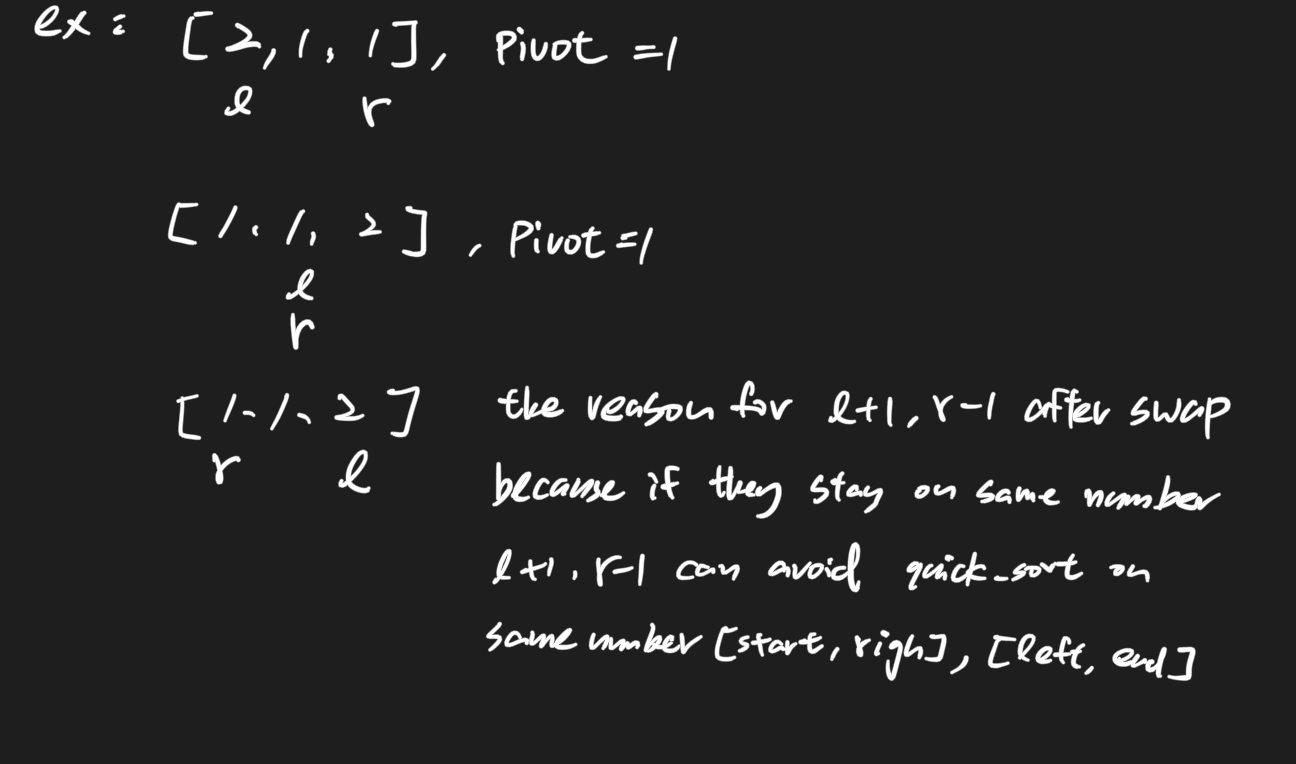 ex: [2, 1, 1], Pivot =1
l r
[1, 1, 2], Pivot =1
l
r
[1, 1, 2] the reason for l+1, r-1 after swap
r l
because if they stay on same number
l+1, r-1 can avoid quick-sort on
same number [start, righ], [left, end]